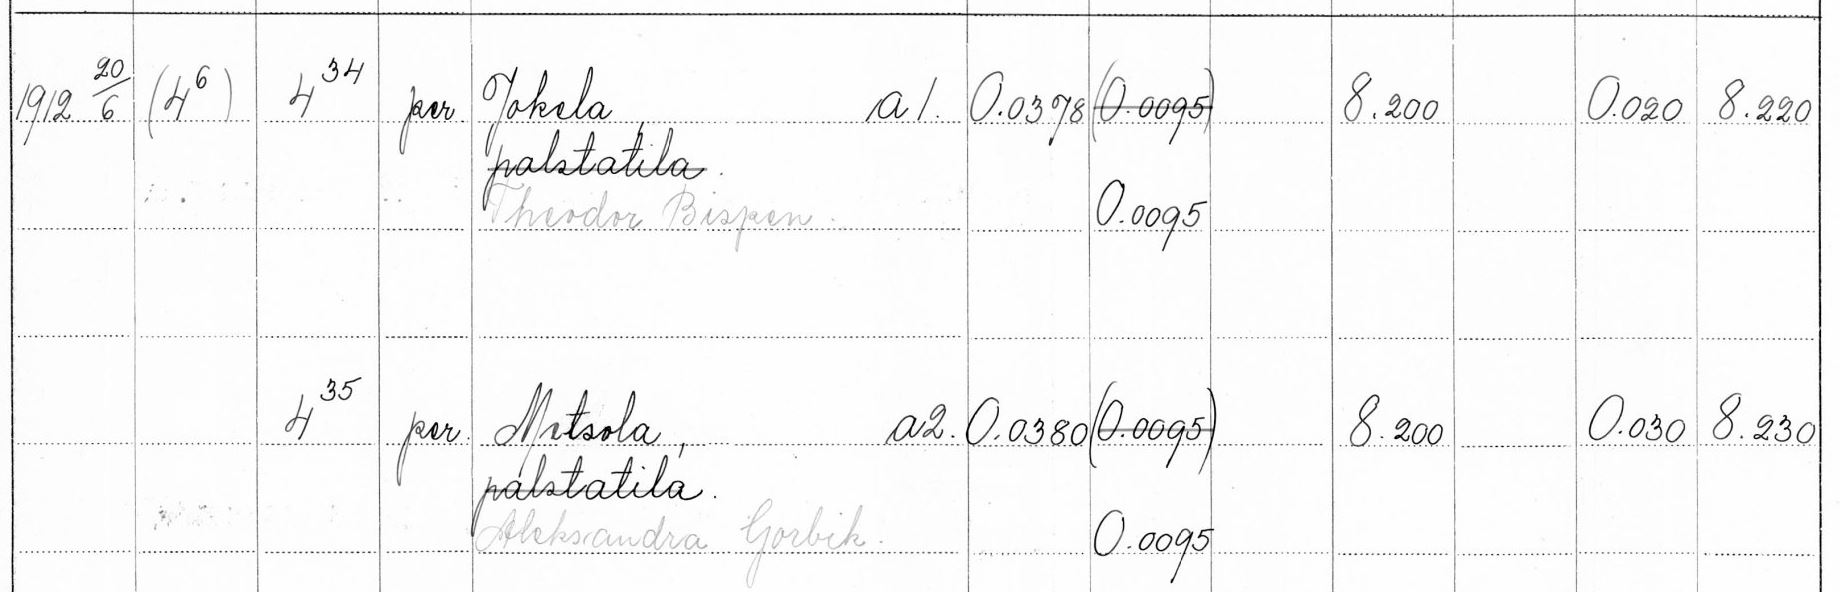 1912 20/6 (4⁶) 4³⁴ per Jokela, a1. 0.0378 (0.0095) 8.200 0.020 8.220
palstatila.
Theodor Bispen. 0.0095
4³⁵ per Metsola, a2. 0.0380 (0.0095) 8.200 0.030 8.230
palstatila.
Aleksandra Gorbik. 0.0095